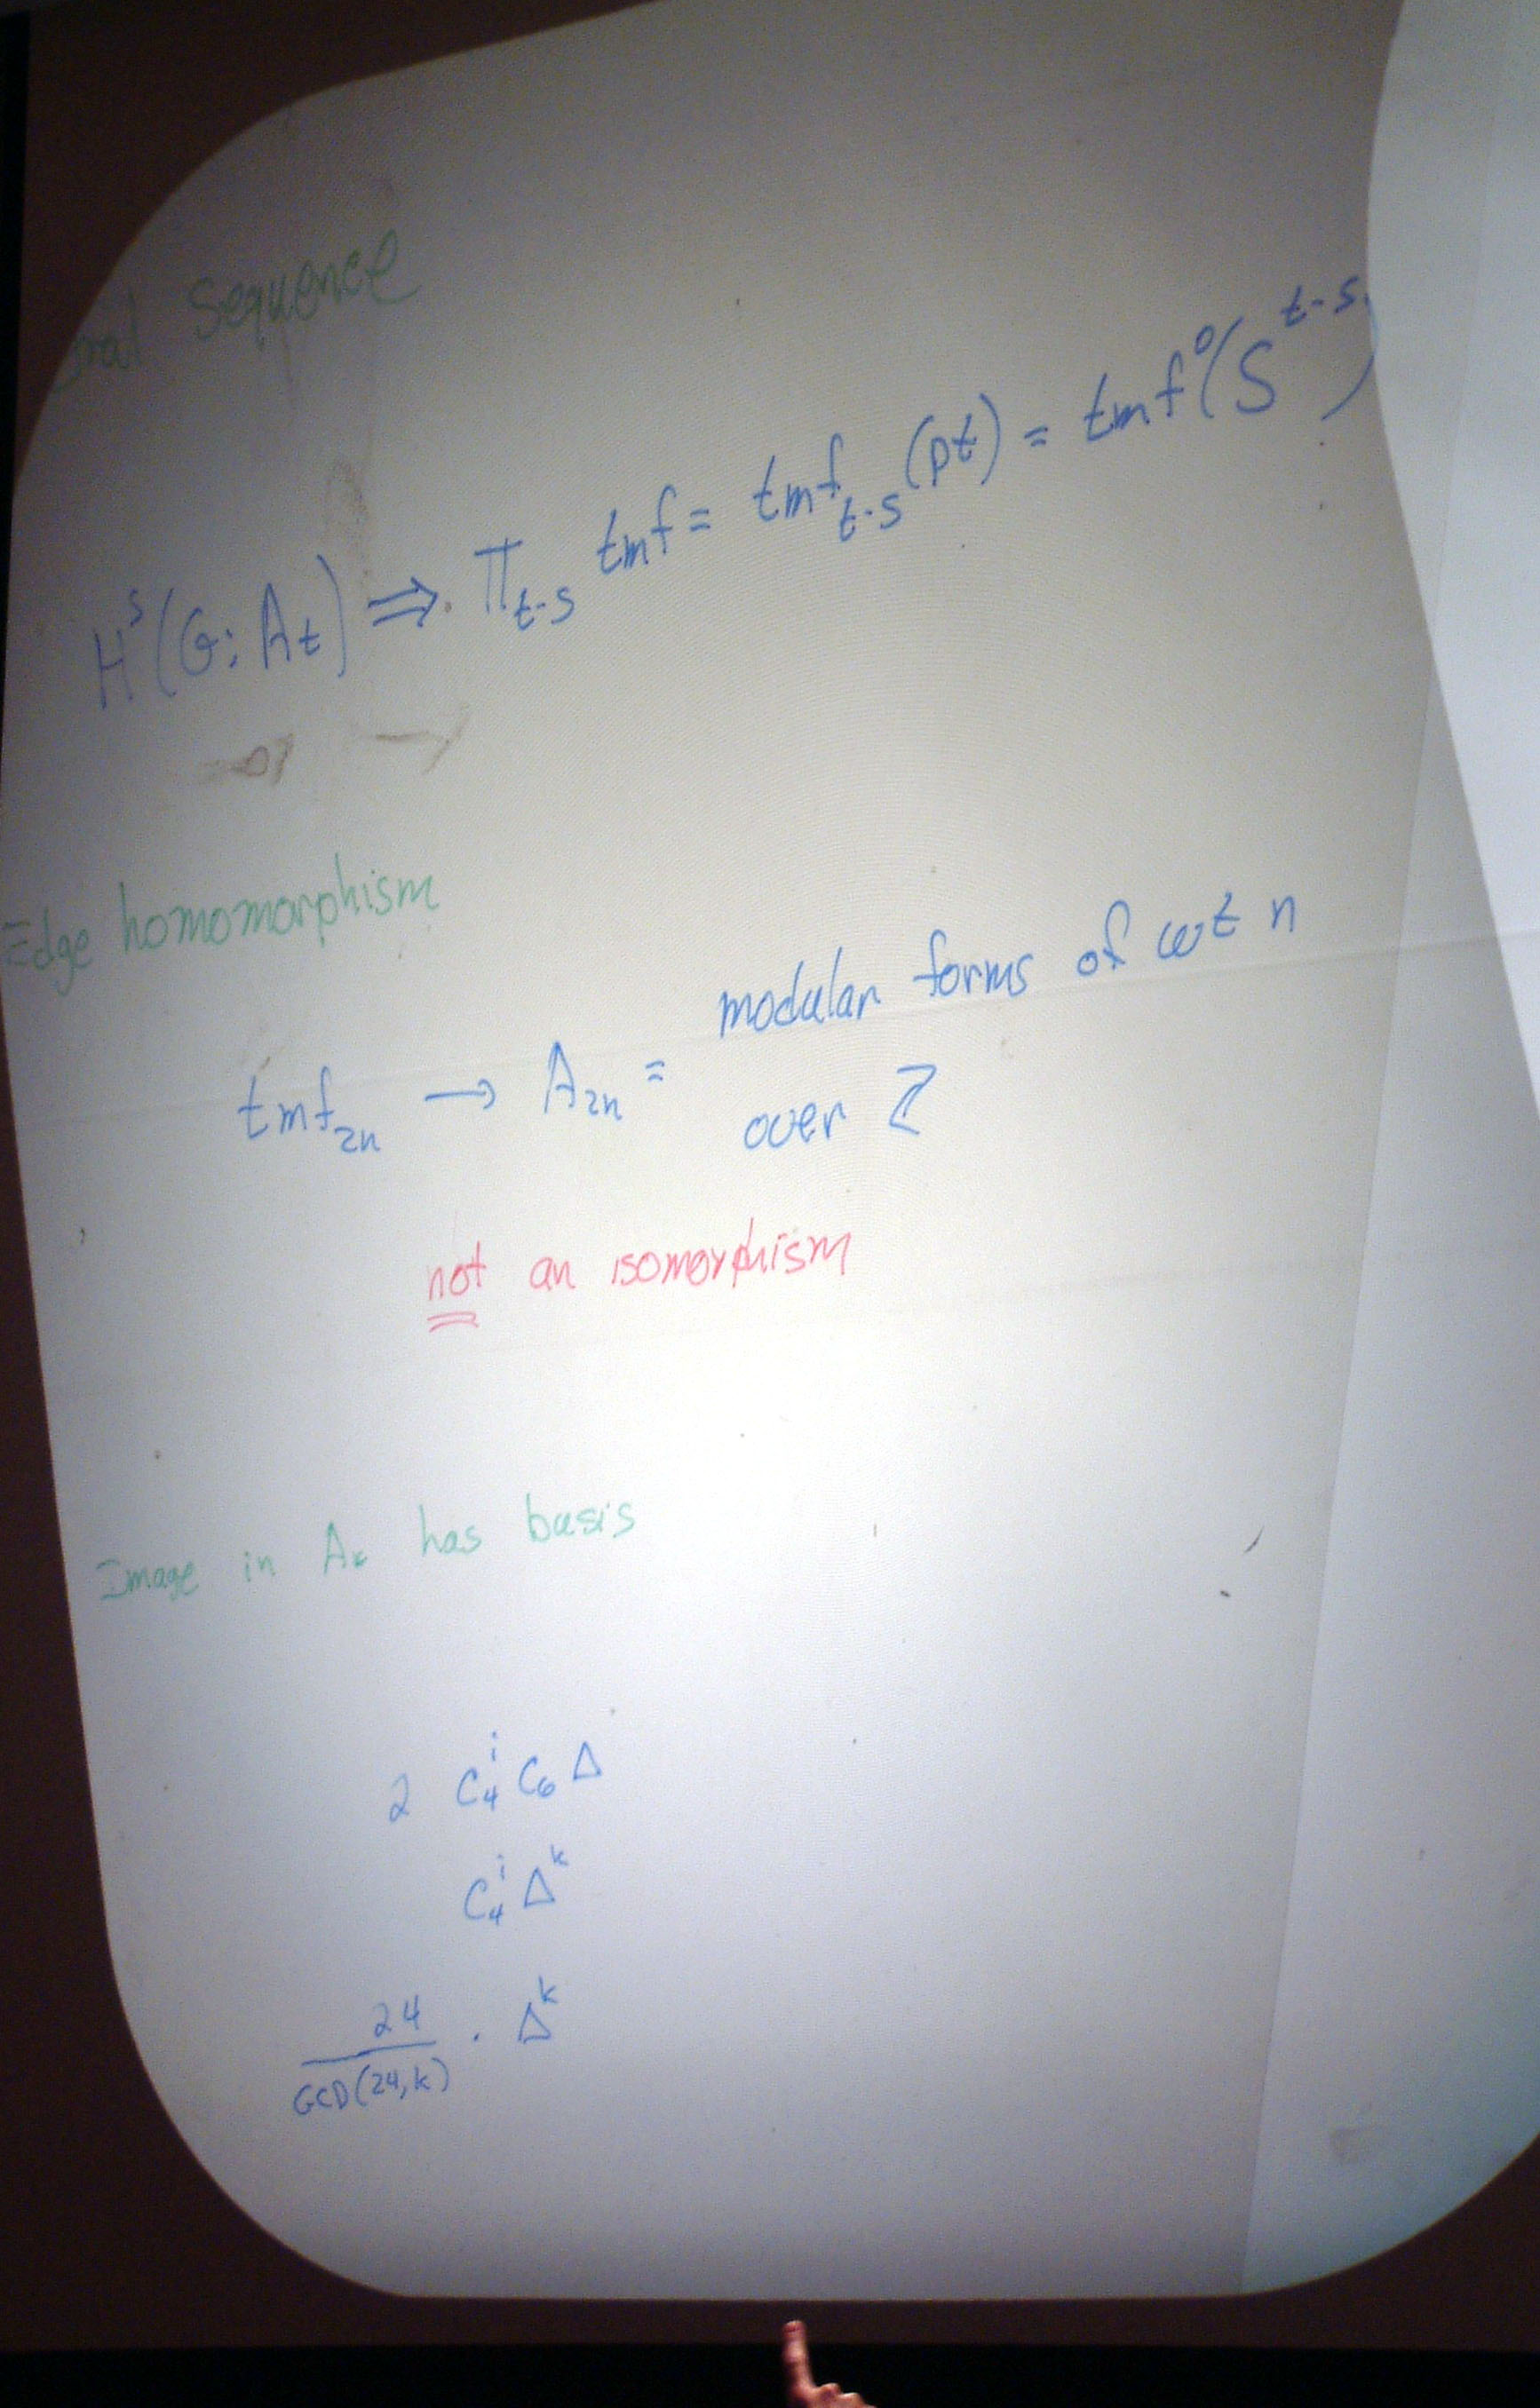 Sequence
H^s(G; A_t) ⇒ π_{t-s} tmf = tmf_{t-s}(pt) = tmf^0(S^{t-s})
Edge homomorphism
tmf_{2n} → A_{2n} = modular forms of wt n
over Z
not an isomorphism
Image in A_* has basis
2 C_4^i C_6 Δ
C_4^i Δ^k
24/GCD(24,k) · Δ^k